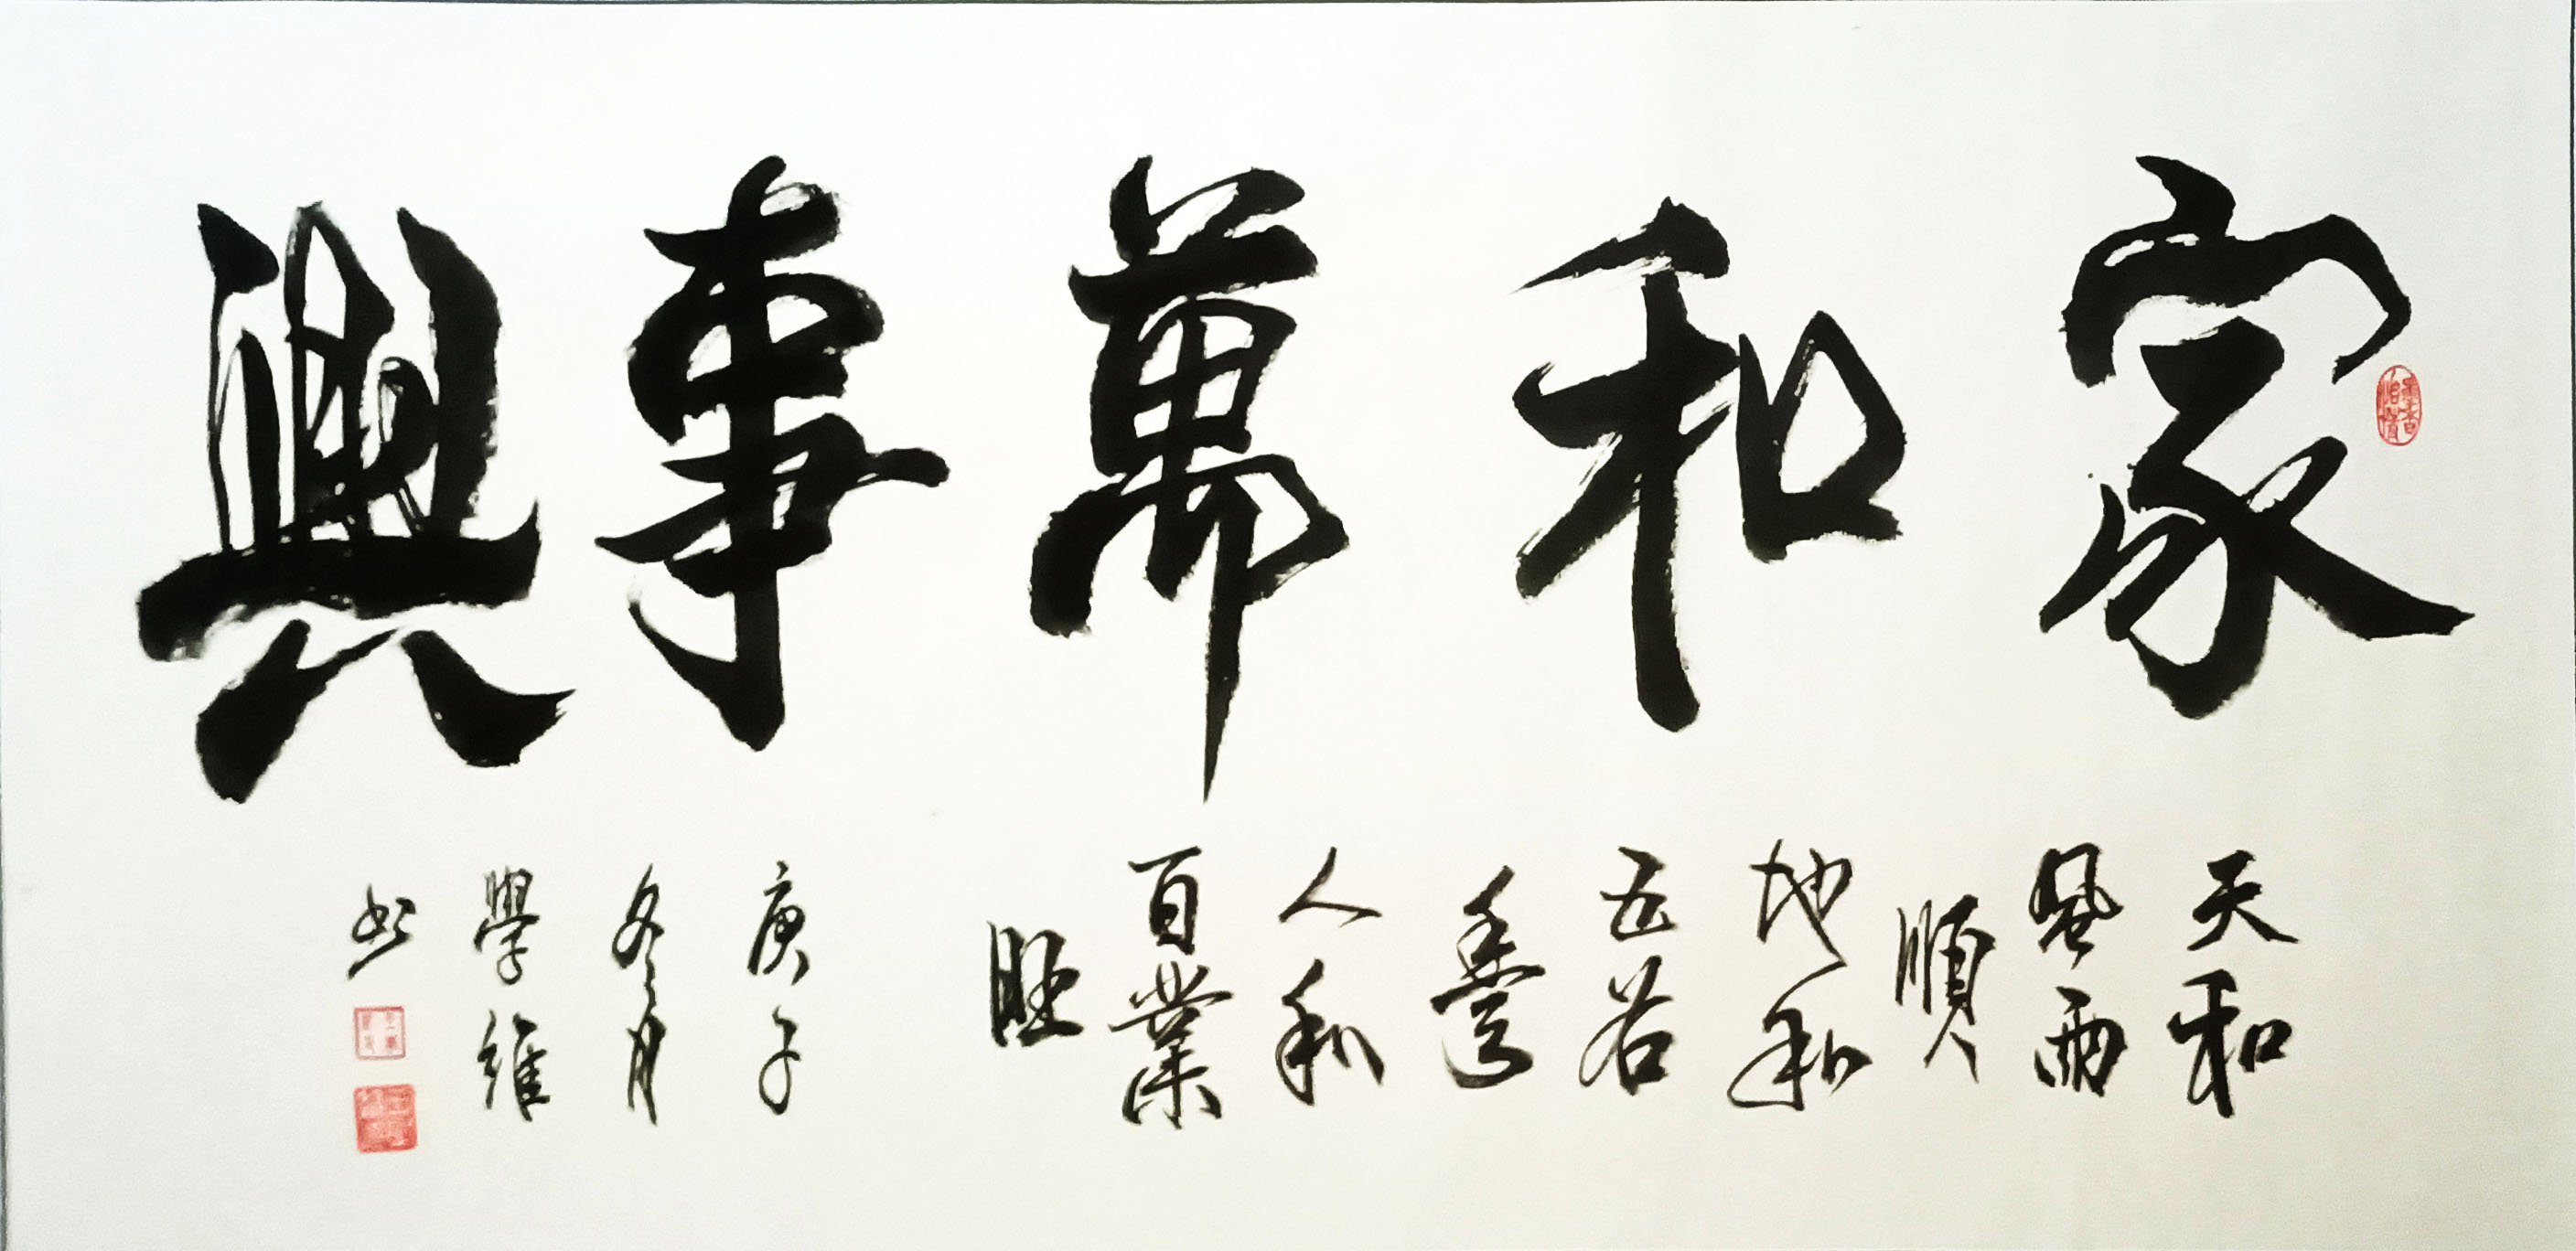 家和萬事興
天和
風雨
順
地和
五谷
豐
人和
百業
旺
庚子
冬月
學維
書